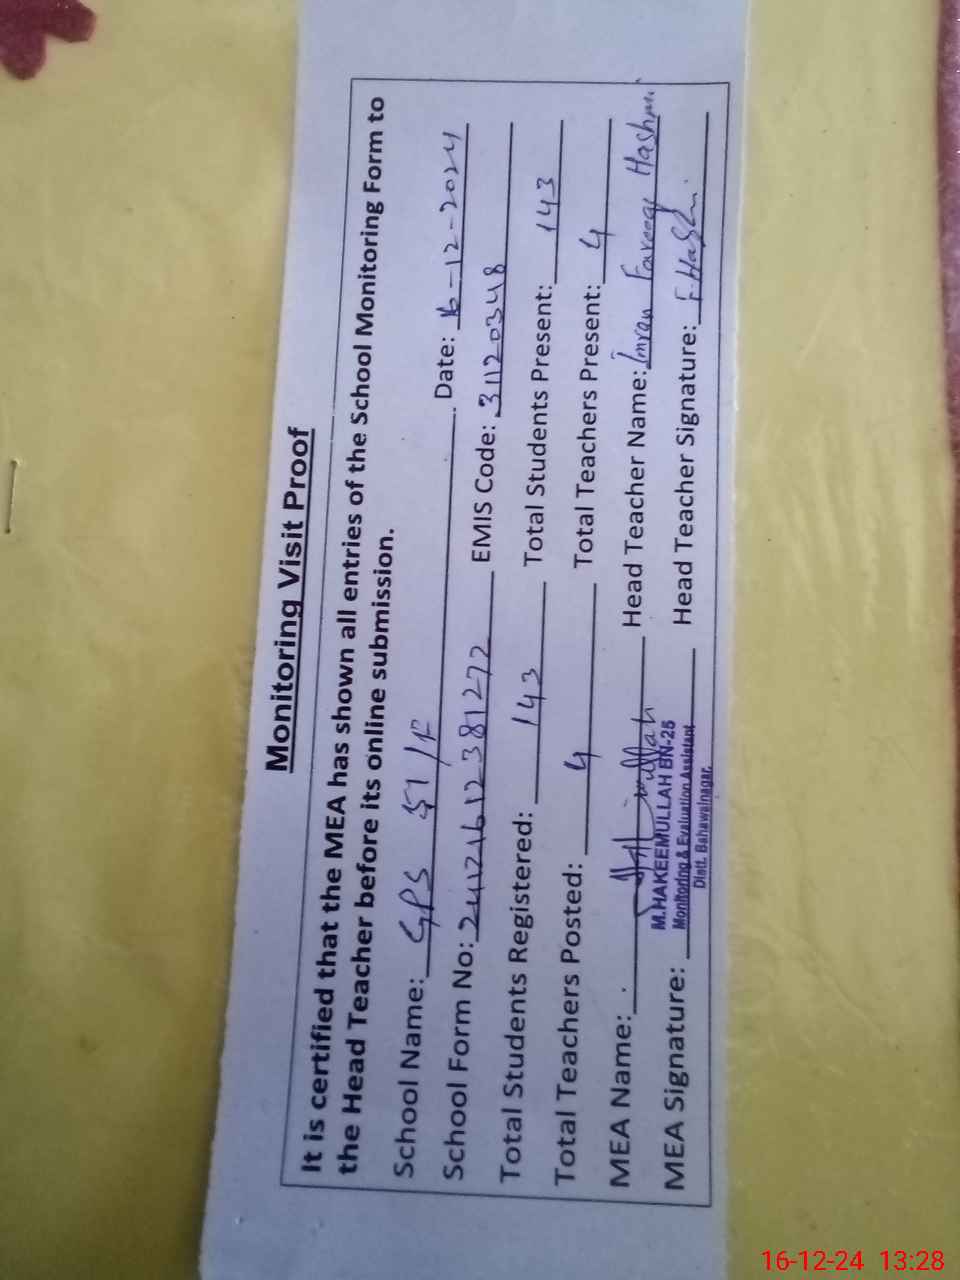 Monitoring Visit Proof
It is certified that the MEA has shown all entries of the School Monitoring Form to
the Head Teacher before its online submission.
School Name: GPS 51/F Date: 16-12-2024
School Form No: 24121612381272 EMIS Code: 31120348
Total Students Registered: 143 Total Students Present: 143
Total Teachers Posted: 4 Total Teachers Present: 4
MEA Name: Head Teacher Name: Imran Farooq Hashmi
M.HAKEEMULLAH BN-25
MEA Signature: Monitoring & Evaluation Assistant Head Teacher Signature: F.Hashmi
Distt. Bahawalnagar.
16-12-24 13:28